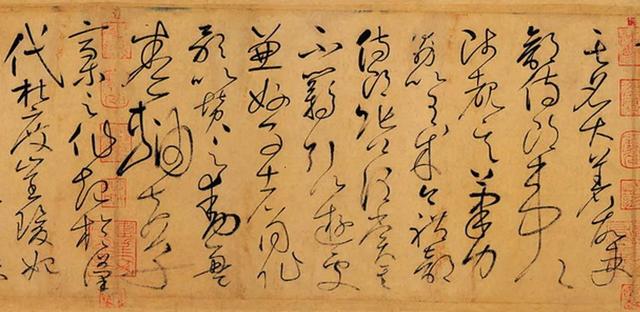 其名大著故吏
部侍郎韋公
陟覩其筆力
勗以有成今禮部
侍郎張公謂賞其
不羈引以遊處
兼好事者同作
歌以贊之動盈
卷軸夫草
稿之作起於漢
代杜度崔瑗始